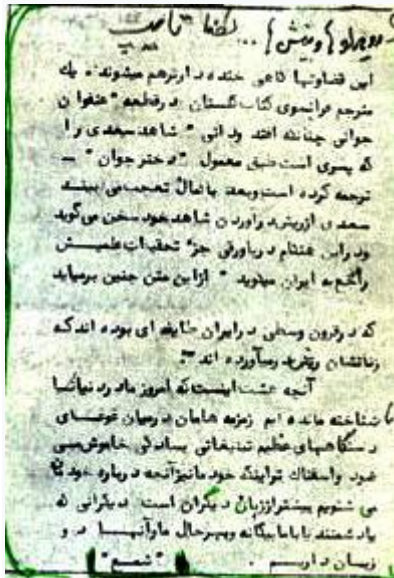 لطفا تایپ
این قضاوتها گاهی خنده دارترهم میشوند. یک
مترجم فرانسوی کتاب گلستان در قطعه " عنفوان
جوانی چنانکه افتد و دانی " شاهد سعدی را
که پسری است طبق معمول " دختر جوان "
ترجمه کرده است وبعد با کمال تعجب می بیند
سعدی ازریش در آوردن شاهد خود سخن می گوید
ودر این هنگام در پاورقی جزء تحقیقات علمیش
راجع به ایران میگوید " از این متن چنین برمیاید
که در قرون وسطی در ایران طایفه ای بوده اند که
زنانشان ریش در میآورده اند ".
آنچه هست اینست که امروز ما در دنیا نا
شناخته مانده ایم زمزمه هامان در میان غوغای
دستگاههای عظیم تبلیغاتی بسادگی خاموش می
شود واسفناک تر اینکه خود ما نیز آنچه درباره خود
می شنویم بیشتر اززبان دیگران است دیگرانی که
یا دشمنند یا با ما بیگانه وبهرحال ما را آنها در و
زبان داریم .
" شمع "